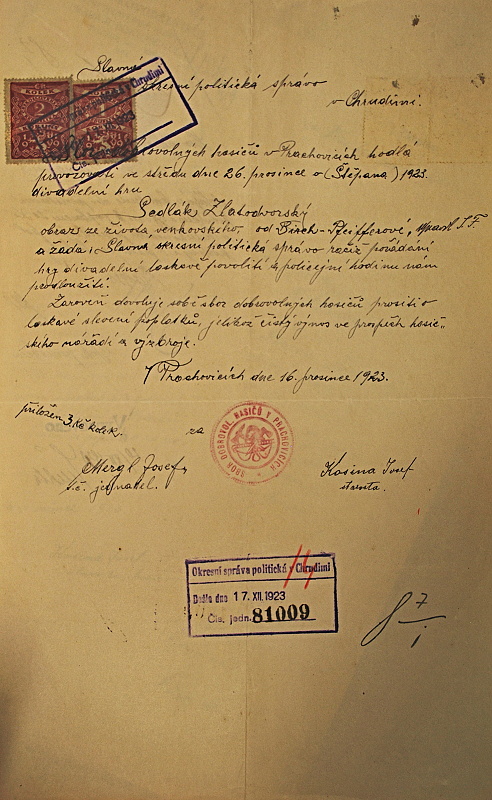 Slavná
okresní politická správo
v Chrudimi.
KOLEK
KOLEK
dobrovolných hasičů v Prachovicích hodlá
provozovati ve středu dne 26. prosince o (Štěpána) 1923.
divadelní hru
Sedlák Zlatodvorský
obraz ze života venkovského, od Birch-Pfeifferové,
a žádá: Slavná okresní politická správo račiž pořádání
hry divadelní laskavě povoliti a policejní hodinu nám
prodloužiti.
Zároveň dovoluje sobě sbor dobrovolných hasičů prositi o
laskavé slevení poplatků, jelikož čistý výnos ve prospěch hasič-
ského nářadí a výzbroje.
V Prachovicích dne 16. prosince 1923.
přiložen 3 Kč kolek.
za
SBOR DOBROVOL. HASIČŮ V PRACHOVICÍCH
Mergl Josef,
t.č. jednatel.
Kosina Josef
starosta.
Okresní správa politická v Chrudimi
Došlo dne 17. XII. 1923
Čís. jedn. 81009
7